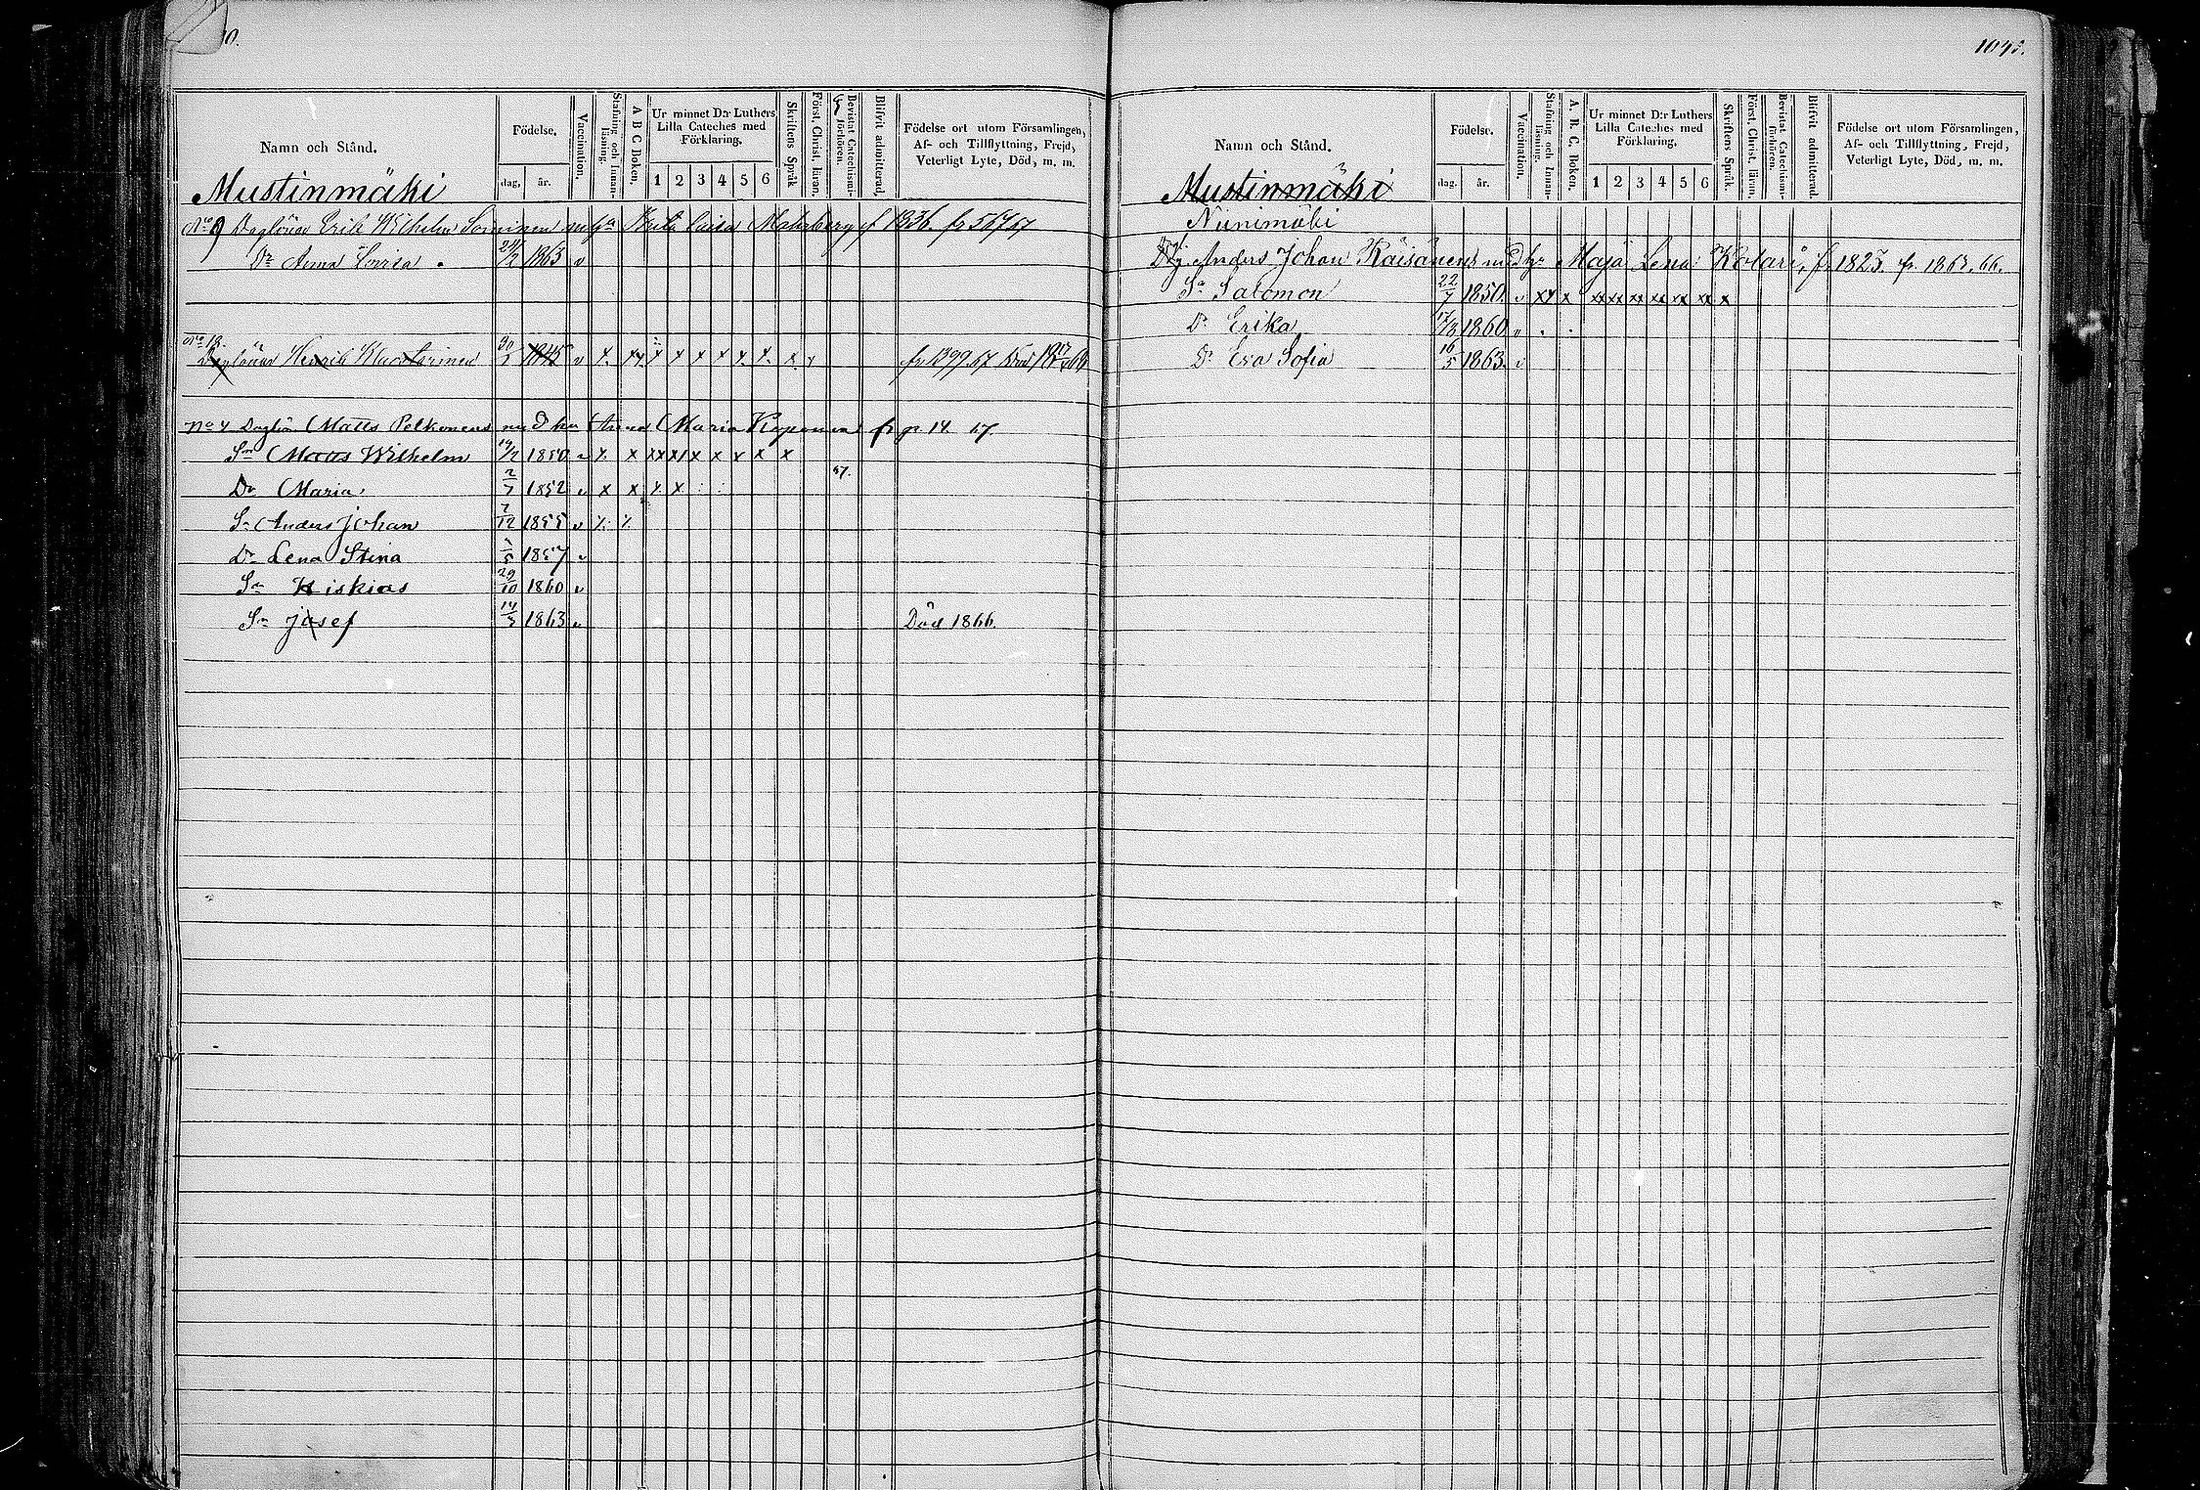 Namn och Stånd.
Födelse.
dag. år.
Vaccination.
Stafning och Innanläsning.
A B C Boken.
Ur minnet D:r Luthers Lilla Cateches med Förklaring.
1 2 3 4 5 6
Skriftens Språk
Först. Christ. läran.
Bevistat Catechismi-förhören.
Blifvit admitterad.
Födelse ort utom Församlingen, Af- och Tillflyttning, Frejd, Veterligt Lyte, Död, m. m.
Mustinmäki
No 9 Daglönar Erik Wilhelm Sorminen Brita Caisa f 1836. fr 567 67
Dr Anna Lovisa 24/2 1863 v
No 18.
Daglönar Henrik 1845 v x. xx. x x x x x. x. x x fr 1399. 67
No 4 Daglön. Matts Pelkonens Anna Maria fr p. 14 67.
Sn Matts Wilhelm 19/2 1850 v x. x xx x x x x x x
67.
Dr Maria 2/7 1852 v x x x x
Sn Anders Johan 7/12 1855 v x. x
Dr Lena Stina 1857 v
Sn Hiskias 29/10 1860 v
Sn Josef 1863 v Död 1866.
1045.
Namn och Stånd.
Födelse.
dag. år.
Vaccination.
Stafning och Innanläsning.
A. B. C. Boken.
Ur minnet D:r Luthers Lilla Cateches med Förklaring.
1 2 3 4 5 6
Skriftens Språk.
Först. Christ. läran.
Bevistat Catechismi-förhören.
Blifvit admitterad.
Födelse ort utom Församlingen, Af- och Tillflyttning, Frejd, Veterligt Lyte, Död, m. m.
Mustinmäki
Niinimäki
Anders Johan Räisänens Maja Lena Kolari, f. 1825. fr. 1863. 66.
Sn Salomon 22/7 1850. v xx x xx xx xx xx xx xx x
Dr Erika 17/3 1860 v
Dr Eva Sofia 16/5 1863. v